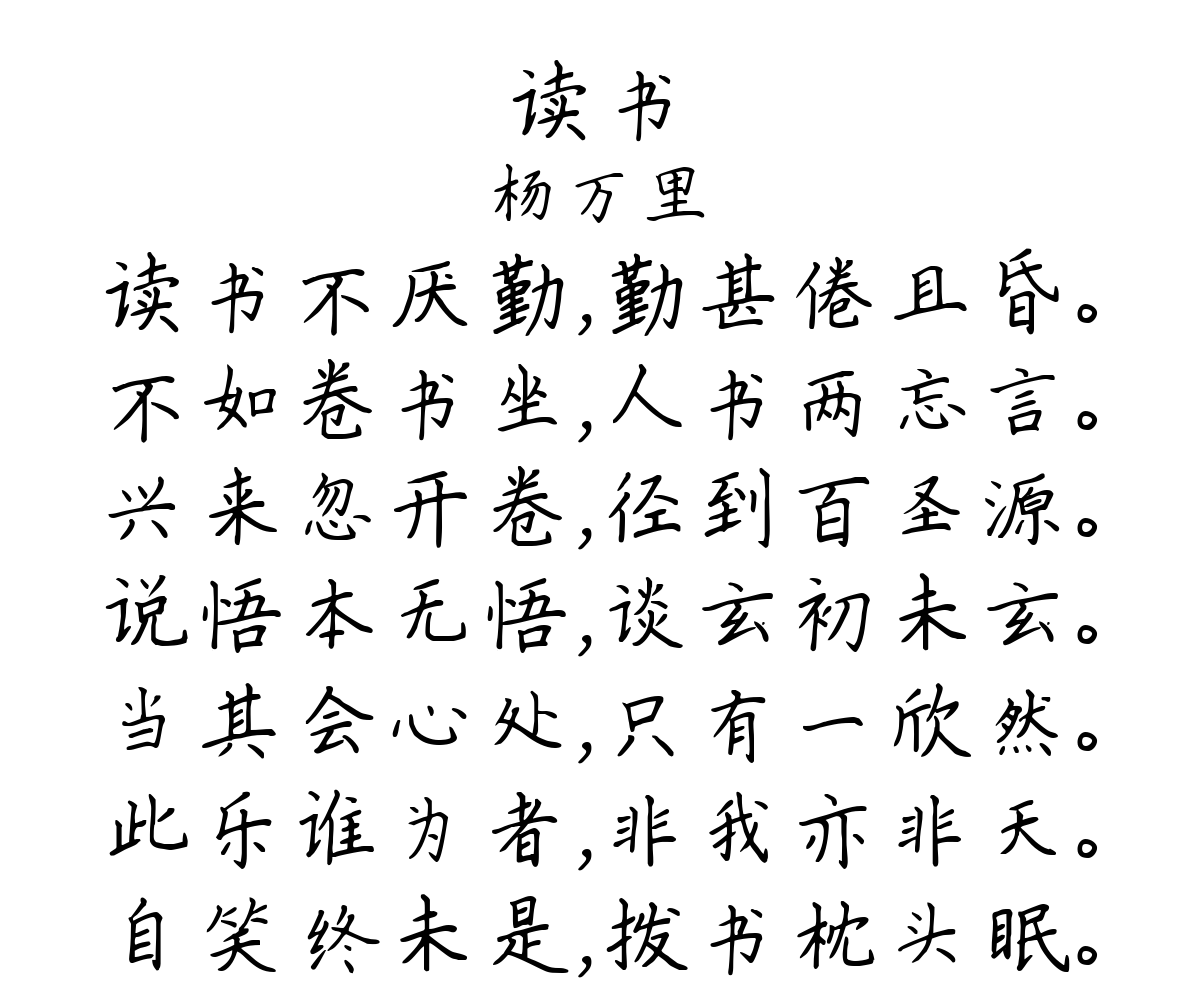 读书
杨万里
读书不厌勤,勤甚倦且昏。
不如卷书坐,人书两忘言。
兴来忽开卷,径到百圣源。
说悟本无悟,谈玄初未玄。
当其会心处,只有一欣然。
此乐谁为者,非我亦非天。
自笑终未是,拨书枕头眠。